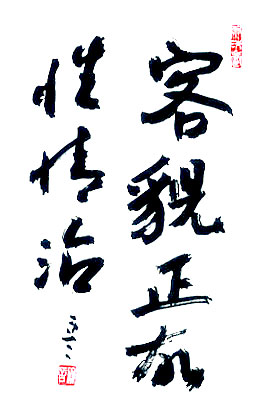 容貌正故
性情治